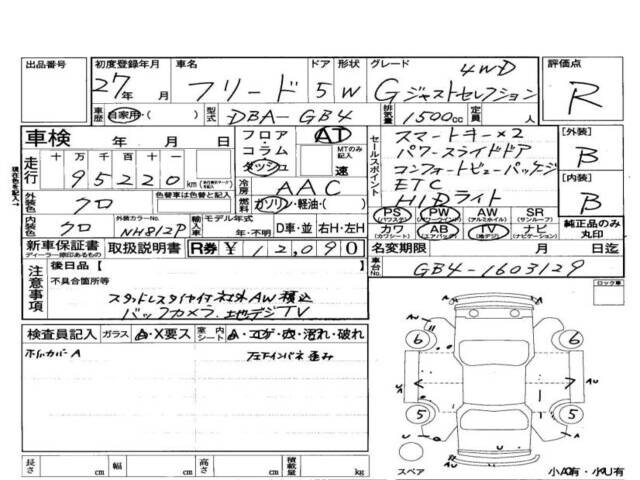 出品番号 初度登録年月 車名 ドア 形状 グレード 評価点
27年 月 フリード 5 W 4WD Gジャストセレクション R
車歴 自家用・( ) 型式 DBA-GB4 排気量 1500cc 定員 人
車検 年 月 日 フロア・コラム ダッシュ AT MTのみ記入 速
走行 十 万 千 百 十 一
95220 km
冷房 AAC
燃料 ガソリン・軽油・( )
外装色 クロ 色替車は色替と記入
内装色 クロ 外装カラーNo. NH812P
輸入車 モデル年式 年・不明 D車・並 右H・左H
セールスポイント
スマートキー×2
パワースライドドア
コンフォートビューパッケージ
ETC
HIDライト
[外装] B
[内装] B
PS (パワステ) PW (パワーウィンド) AW (アルミホイル) SR (サンルーフ)
カワ (カワシート) AB (エアバック) TV (地デジ) ナビ (ナビゲーション)
純正品のみ丸印
新車保証書 取扱説明書 R券 ¥12,090
ディーラー捺印あるもの
名変期限 月 日迄
車台No. GB4-1603129
現在色を記入→
注意事項
後日品【
不具合箇所等
スタッドレスタイヤ付ネ社外AW積込
バックカメラ.地デジTV
ロック車
検査員記入 ガラス A・X要ス 室内シート A・コゲ・穴・汚れ・破れ
ホイルカバーA 左下インパネ歪み
6 6
A AU
U A 7
5 5
U U
AU
長さ cm 幅 cm 高さ cm 積載量 kg
スペア 小A有・小U有